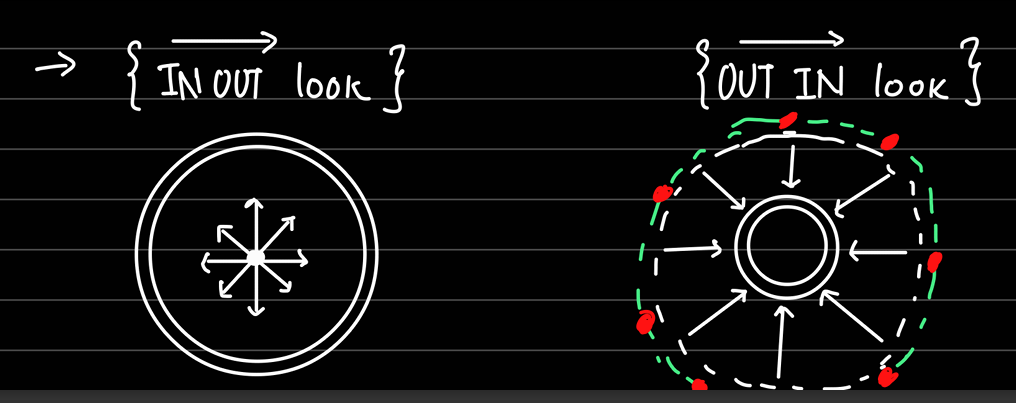 → { IN OUT look } { OUT IN look }